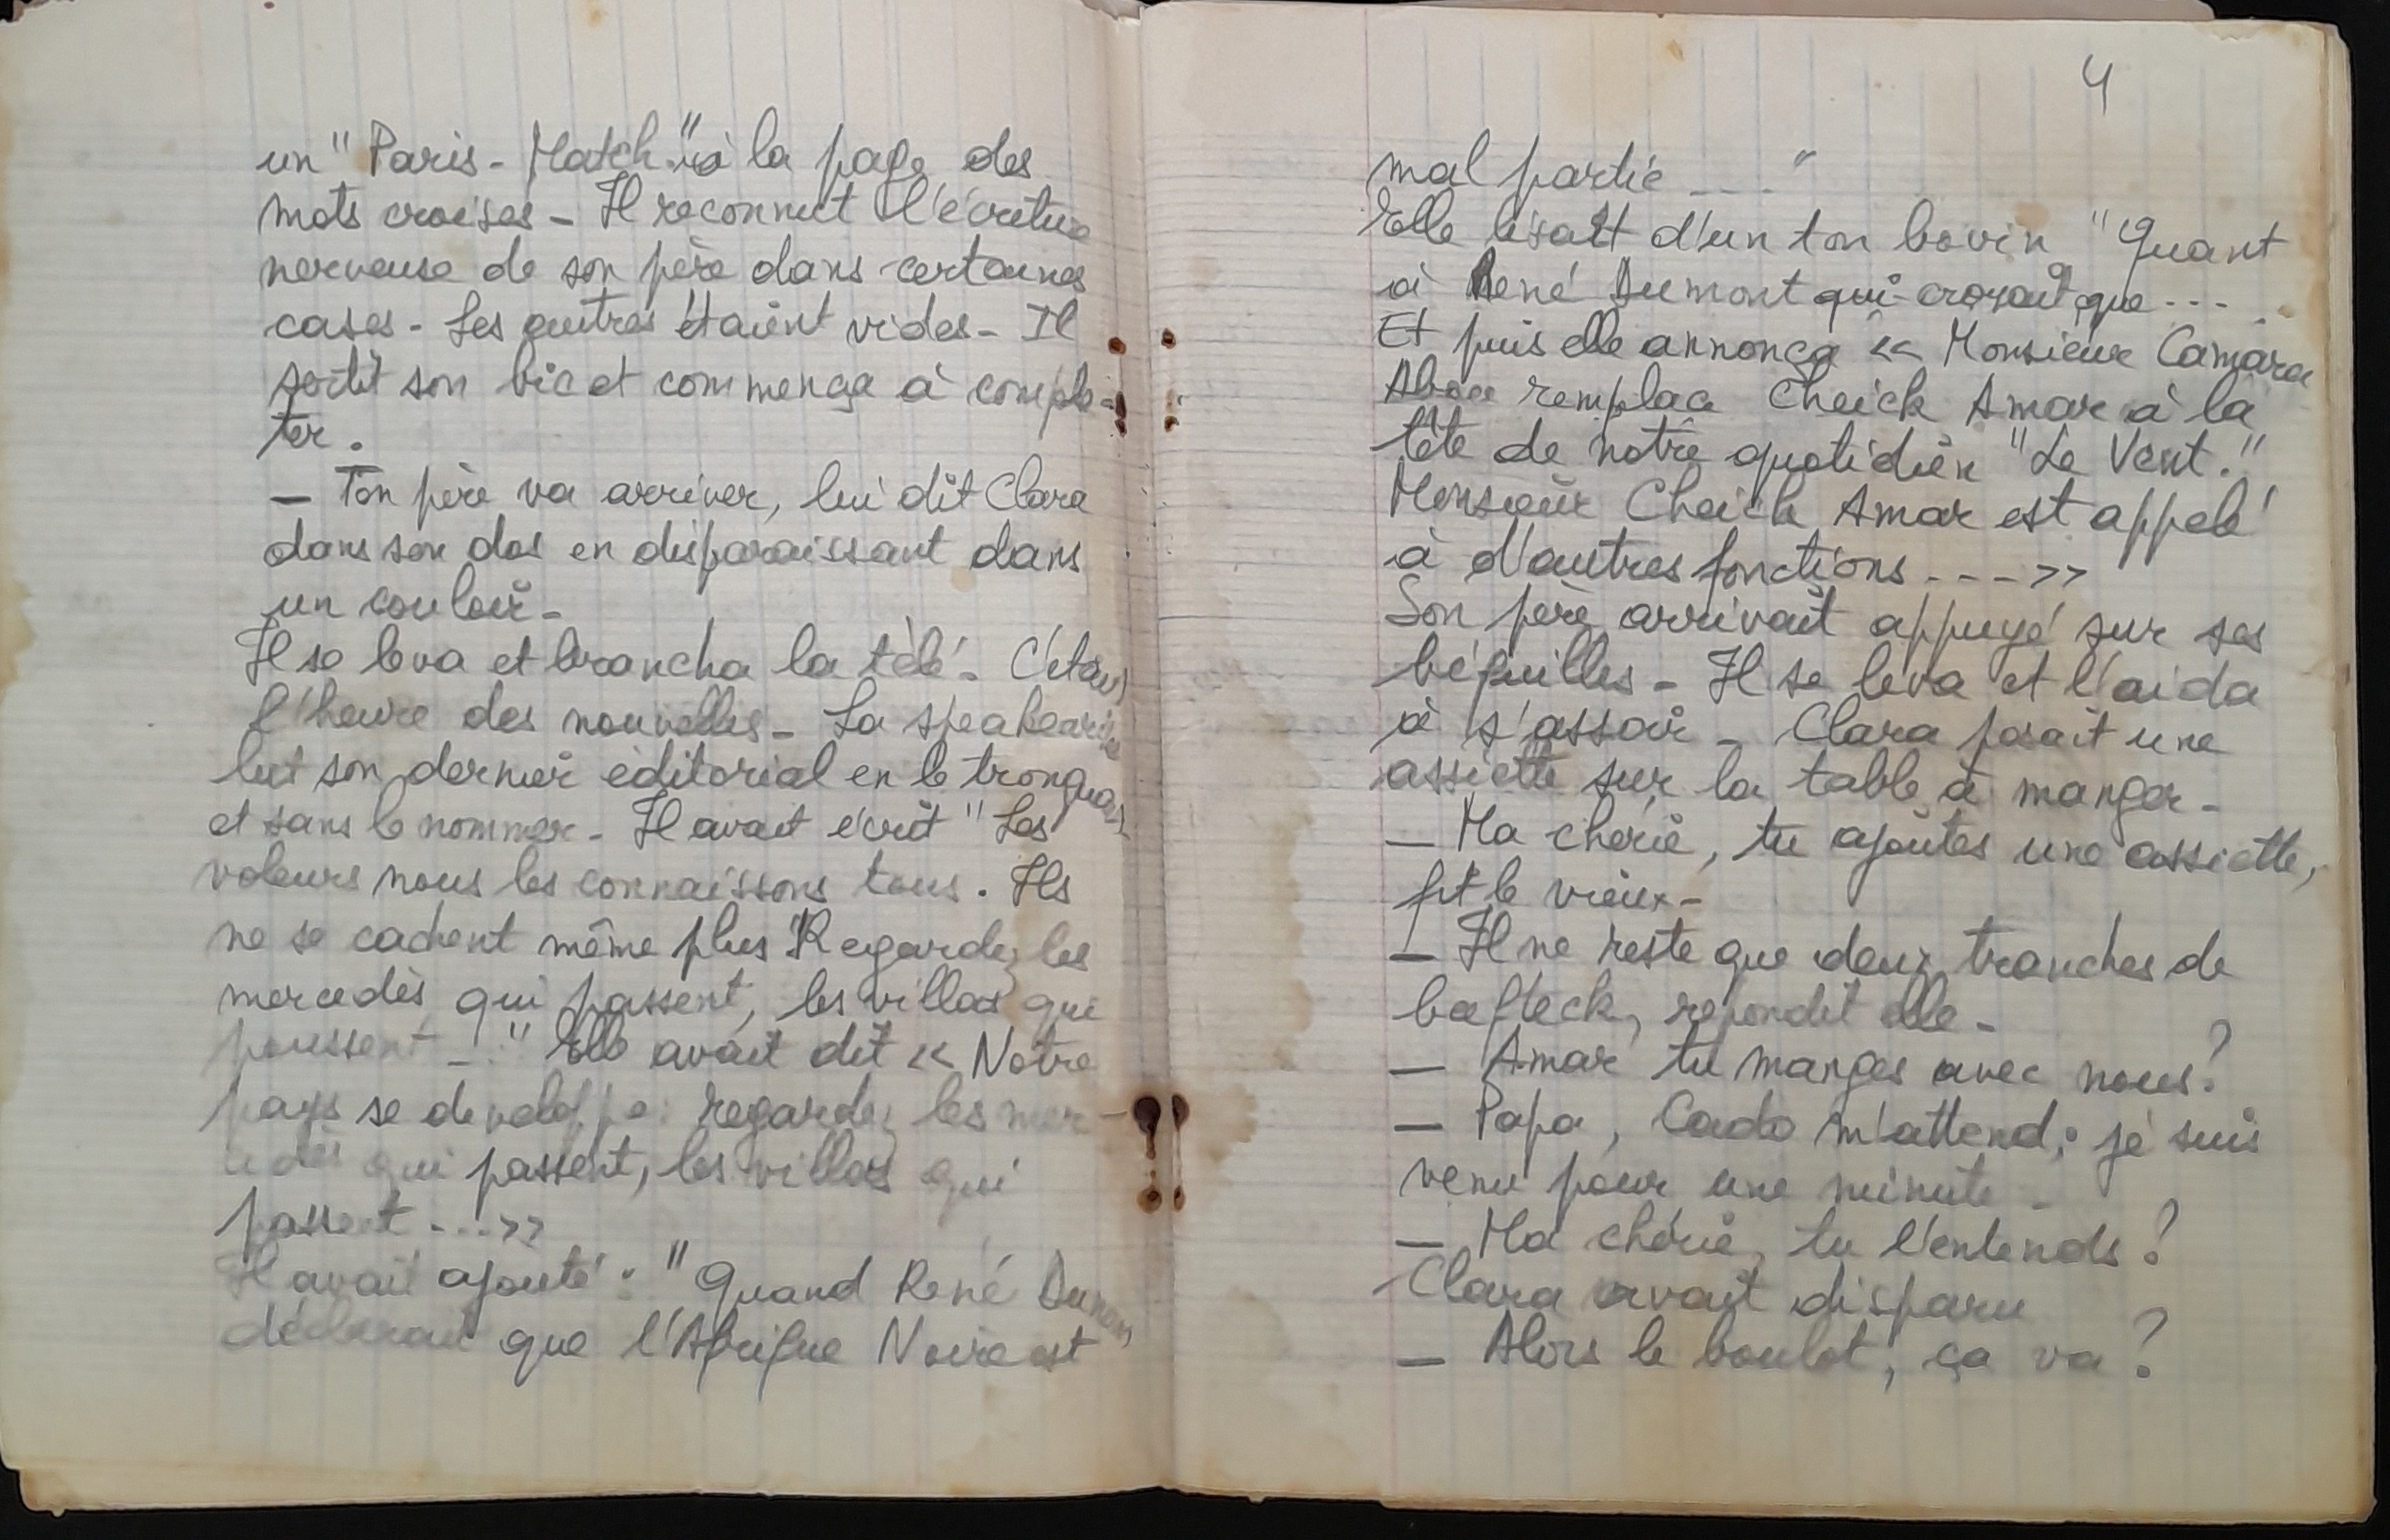 un "Paris-Match" à la page des
mots croisés - Il reconnut l'écriture
nerveuse de son père dans certaines
cases - Les autres étaient vides - Il
sortit son bic et commença à complé-
ter.
- Ton père va arriver, lui dit Clara
dans son dos en disparaissant dans
un couloir -
Il se leva et brancha la télé - C'était
l'heure des nouvelles - La speakerine
lut son dernier éditorial en le tronquant
et sans le nommer - Il avait écrit "Les
voleurs nous les connaissons tous. Ils
ne se cachent même plus Regardez les
mercedès qui passent, les villas qui
poussent..." Elle avait dit << Notre
pays se developpe: regardez les mer-
cedès qui passent, les villas qui
passent ...>>
Il avait ajouté : "Quand René Dumont
déclarait que l'Afrique Noire est
4
mal partie ...."
Elle lisait d'un ton bovin "Quant
à René Dumont qui croyait que ...
Et puis elle annonça << Monsieur Camara
remplace Cheick Amar à la
tête de notre quotidien "Le Vent."
Monsieur Cheick Amar est appelé
à d'autres fonctions ....>>
Son père arrivait appuyé sur ses
béquilles - Il se leva et l'aida
à s'assoir - Clara posait une
assiette sur la table à manger -
- Ma chérie, tu ajoutes une assiette,
fit le vieux -
- Il ne reste que deux tranches de
bafteck, repondit elle -
- Amar tu manges avec nous?
- Papa, Cado m'attend; je suis
venu pour une minute -
- Ma chérie, tu l'entends?
Clara avait disparu
- Alors le boulot, ça va?